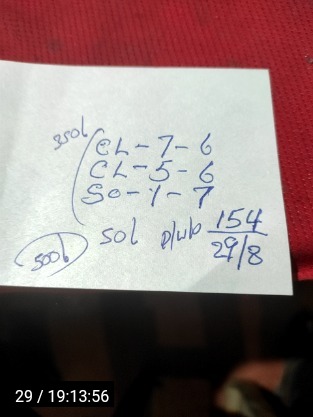 350L
CL-7-6
CL-5-6
SO-1-7
500L SOL p/w/o 154
29/8
29 / 19:13:56